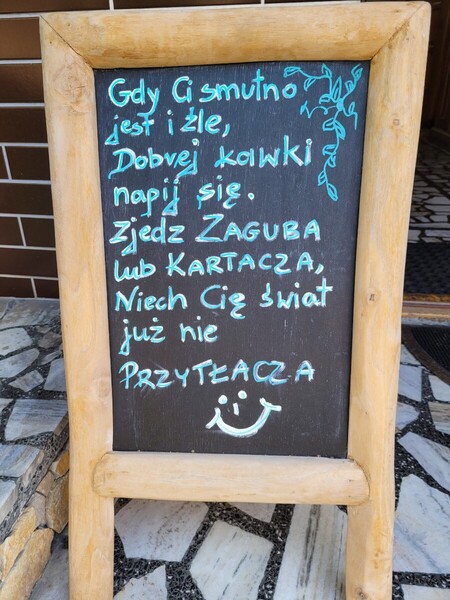 Gdy Ci smutno
jest i źle,
Dobrej kawki
napij się.
Zjedz ZAGUBA
lub KARTACZA,
Niech Cię świat
już nie
PRZYTŁACZA